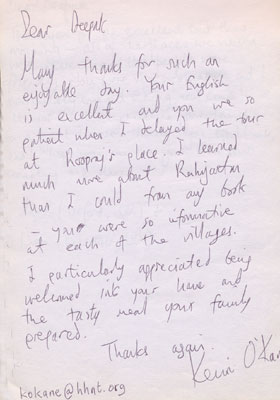 Dear Deepak
Many thanks for such an
enjoyable day. Your English
is excellent and you were so
patient when I delayed the tour
at Roopraj's place. I learned
much more about
than I could from any book
- you were so informative
at each of the villages.
I particularly appreciated being
welcomed into your home and
the tasty meal your family
prepared.
Thanks again.
Kevin O'Kan
kokane@hhnt.org